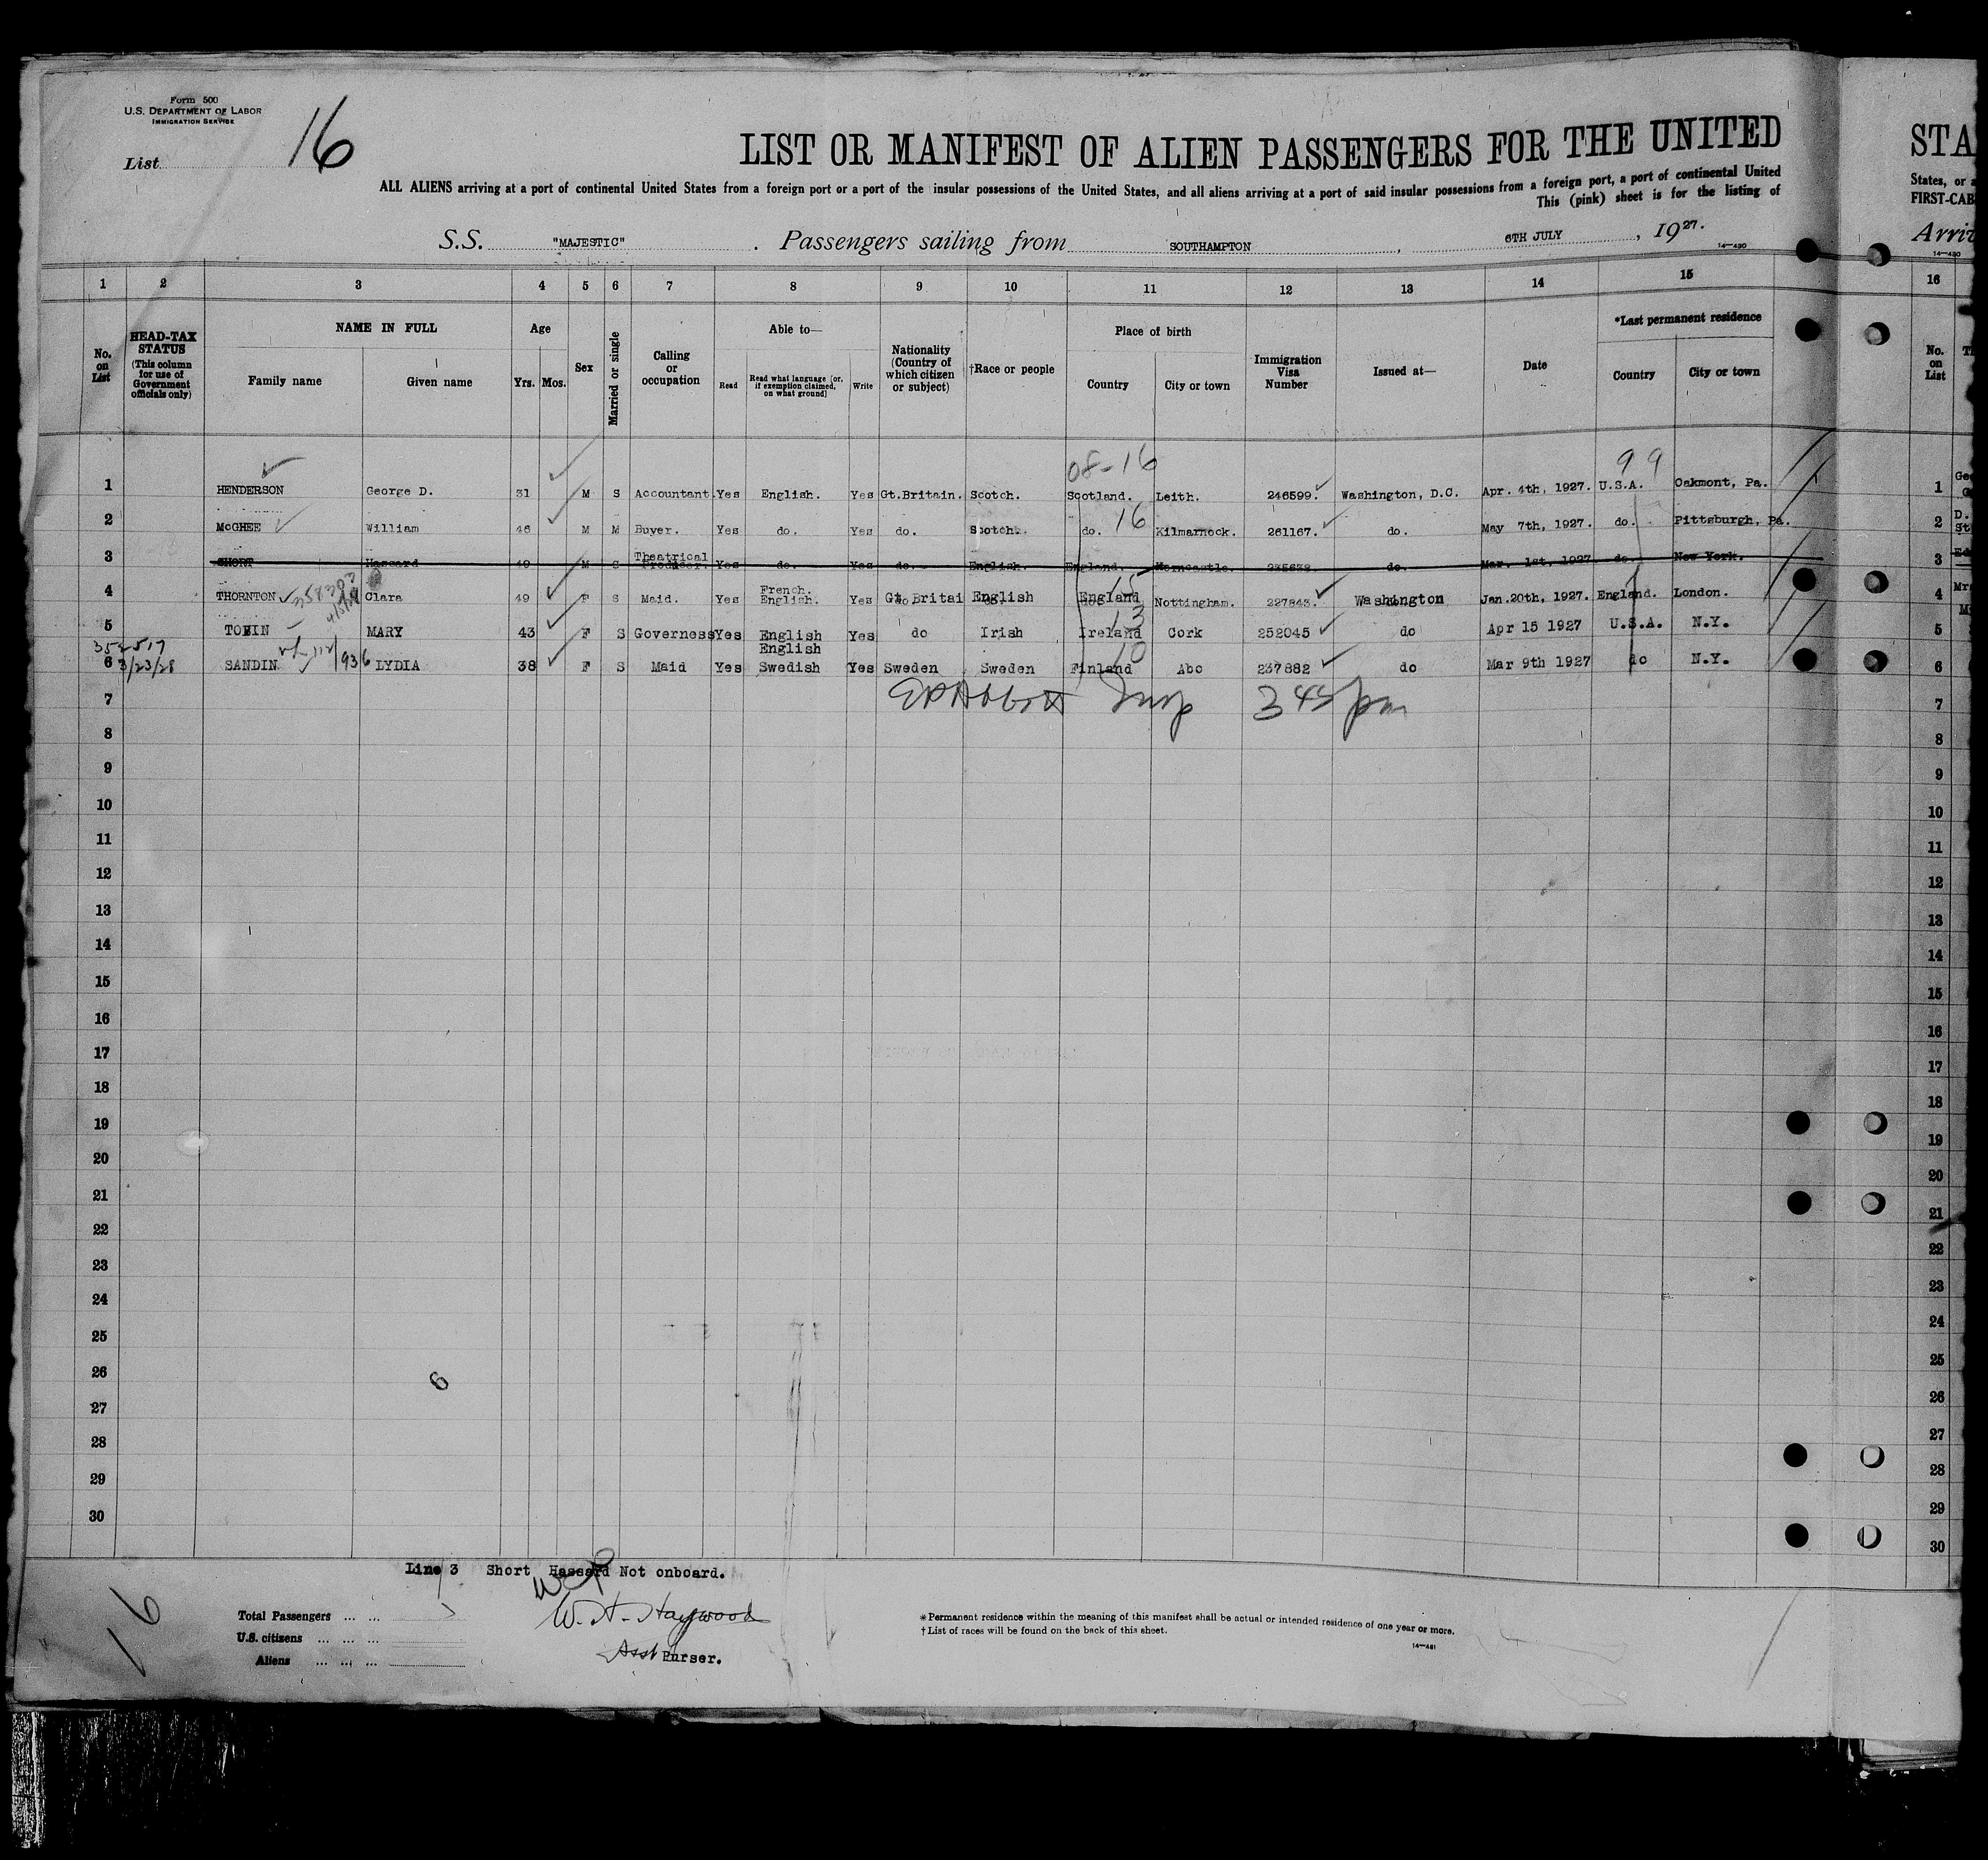 Form 500
U.S. DEPARTMENT OF LABOR
IMMIGRATION SERVICE
List 16
LIST OR MANIFEST OF ALIEN PASSENGERS FOR THE UNITED
ALL ALIENS arriving at a port of continental United States from a foreign port or a port of the insular possessions of the United States, and all aliens arriving at a port of said insular possessions from a foreign port, a port of continental United
This (pink) sheet is for the listing of
S.S. "MAJESTIC" . Passengers sailing from SOUTHAMPTON , 6TH JULY , 1927.
14—430
1 2 3 4 5 6 7 8 9 10 11 12 13 14 15
No. on List
HEAD-TAX STATUS (This column for use of Government officials only)
NAME IN FULL
Family name Given name
Age
Yrs. Mos.
Sex
Married or single
Calling or occupation
Able to—
Read Read what language (or, if exemption claimed, on what ground) Write
Nationality (Country of which citizen or subject)
†Race or people
Place of birth
Country City or town
Immigration Visa Number
Issued at—
Date
*Last permanent residence
Country City or town
08-16 99
1 HENDERSON George D. 31 M S Accountant. Yes English. Yes Gt.Britain. Scotch. Scotland. Leith. 246599. Washington, D.C. Apr. 4th, 1927. U.S.A. Oakmont, Pa.
2 McGHEE William 46 M M Buyer. Yes do. Yes do. Scotch. do. 16 Kilmarnock. 261167. do. May 7th, 1927. do. Pittsburgh, Pa.
3 SHORT Hassard 49 M S Theatrical Producer. Yes do. Yes do. English. England. Horncastle. 235638. do. Mar. 1st, 1927 do. New York.
4 THORNTON 358303 Clara 49 F S Maid. Yes French. English. Yes Gt Britai English England 15 Nottingham. 227843. Washington Jan.20th, 1927. England. London.
5 TOBIN MARY 43 F S Governess Yes English Yes do Irish Ireland 13 Cork 252045 do Apr 15 1927 U.S.A. N.Y.
3/23/28
6 SANDIN LYDIA 38 F S Maid Yes English Swedish Yes Sweden Sweden Finland 10 Abo 237882 do Mar 9th 1927 do N.Y.
7 Insp 3 45 pm
8
9
10
11
12
13
14
15
16
17
18
19
20
21
22
23
24
25
26
6
27
28
29
30
Line 3 Short Hassard Not onboard.
16
Total Passengers ... ...
U.S. citizens ... ... ...
Aliens ... ... ...
W. H. Haywood
Asst Purser.
*Permanent residence within the meaning of this manifest shall be actual or intended residence of one year or more.
†List of races will be found on the back of this sheet.
14—431
STA
States, or a
FIRST-CAB
Arriv
14—430
16
No. on List
1
2
3
4
5
6
7
8
9
10
11
12
13
14
15
16
17
18
19
20
21
22
23
24
25
26
27
28
29
30